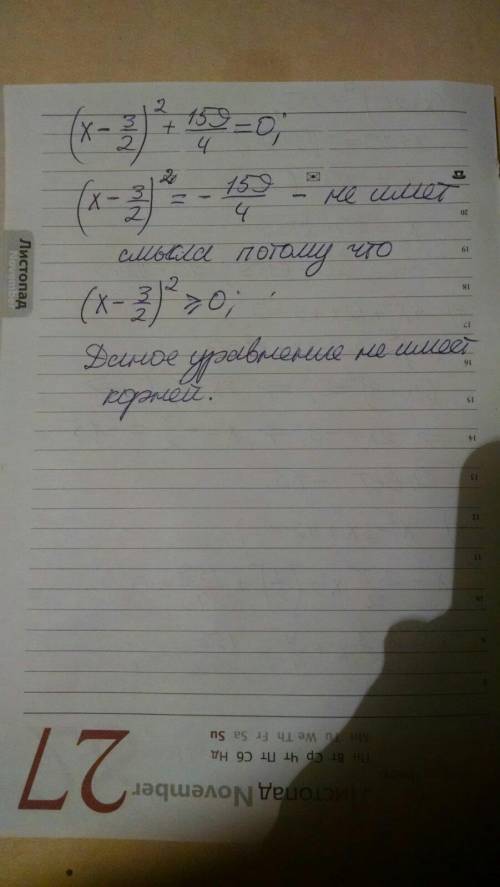 (x - 3/2)² + 159/4 = 0;
(x - 3/2)² = - 159/4 - не имет
смысла потому что
(x - 3/2)² ⩾ 0;
Даное уравнение не имеет
корней.
Листопад
November
20
19
18
17
16
15
14
13
12
11
10
9
8
27
Листопад November
Пн Вт Ср Чт Пт Сб Нд
Mo Tu We Th Fr Sa Su